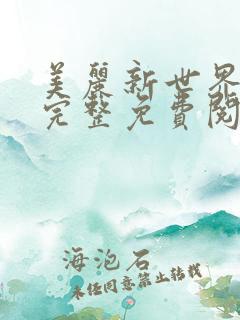 美丽新世界
完整免费阅
海泡石
未经同意禁止转载